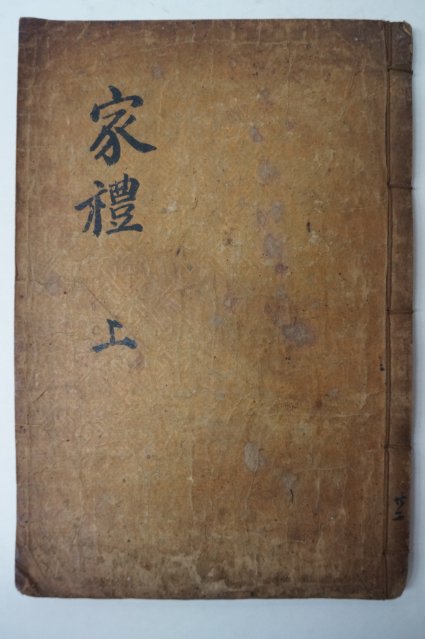 家禮
上